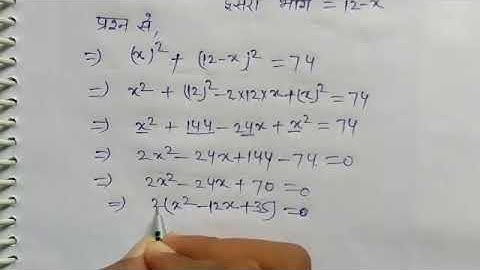 दूसरा भाग = 12-x
प्रश्न से,
⇒ (x)² + (12-x)² = 74
⇒ x² + (12)² - 2×12×x + (x)² = 74
⇒ x² + 144 - 24x + x² = 74
⇒ 2x² - 24x + 144 - 74 = 0
⇒ 2x² - 24x + 70 = 0
⇒ 2(x² - 12x + 35) = 0